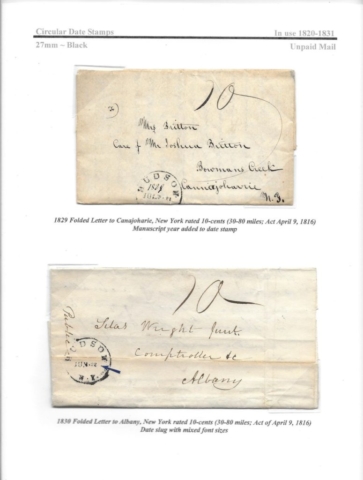 Circular Date Stamps In use 1820-1831
27mm – Black Unpaid Mail
10
Miss Britton
Care of Mr Joshua Britton
Bowmans Creek
Cannajoharrie
N.Y.
HUDSON
1829
1829 Folded Letter to Canajoharie, New York rated 10-cents (30-80 miles; Act April 9, 1816)
Manuscript year added to date stamp
10
Silas Wright Junr.
Comptroller &c
Albany
HUDSON
N.Y.
1830 Folded Letter to Albany, New York rated 10-cents (30-80 miles; Act of April 9, 1816)
Date slug with mixed font sizes